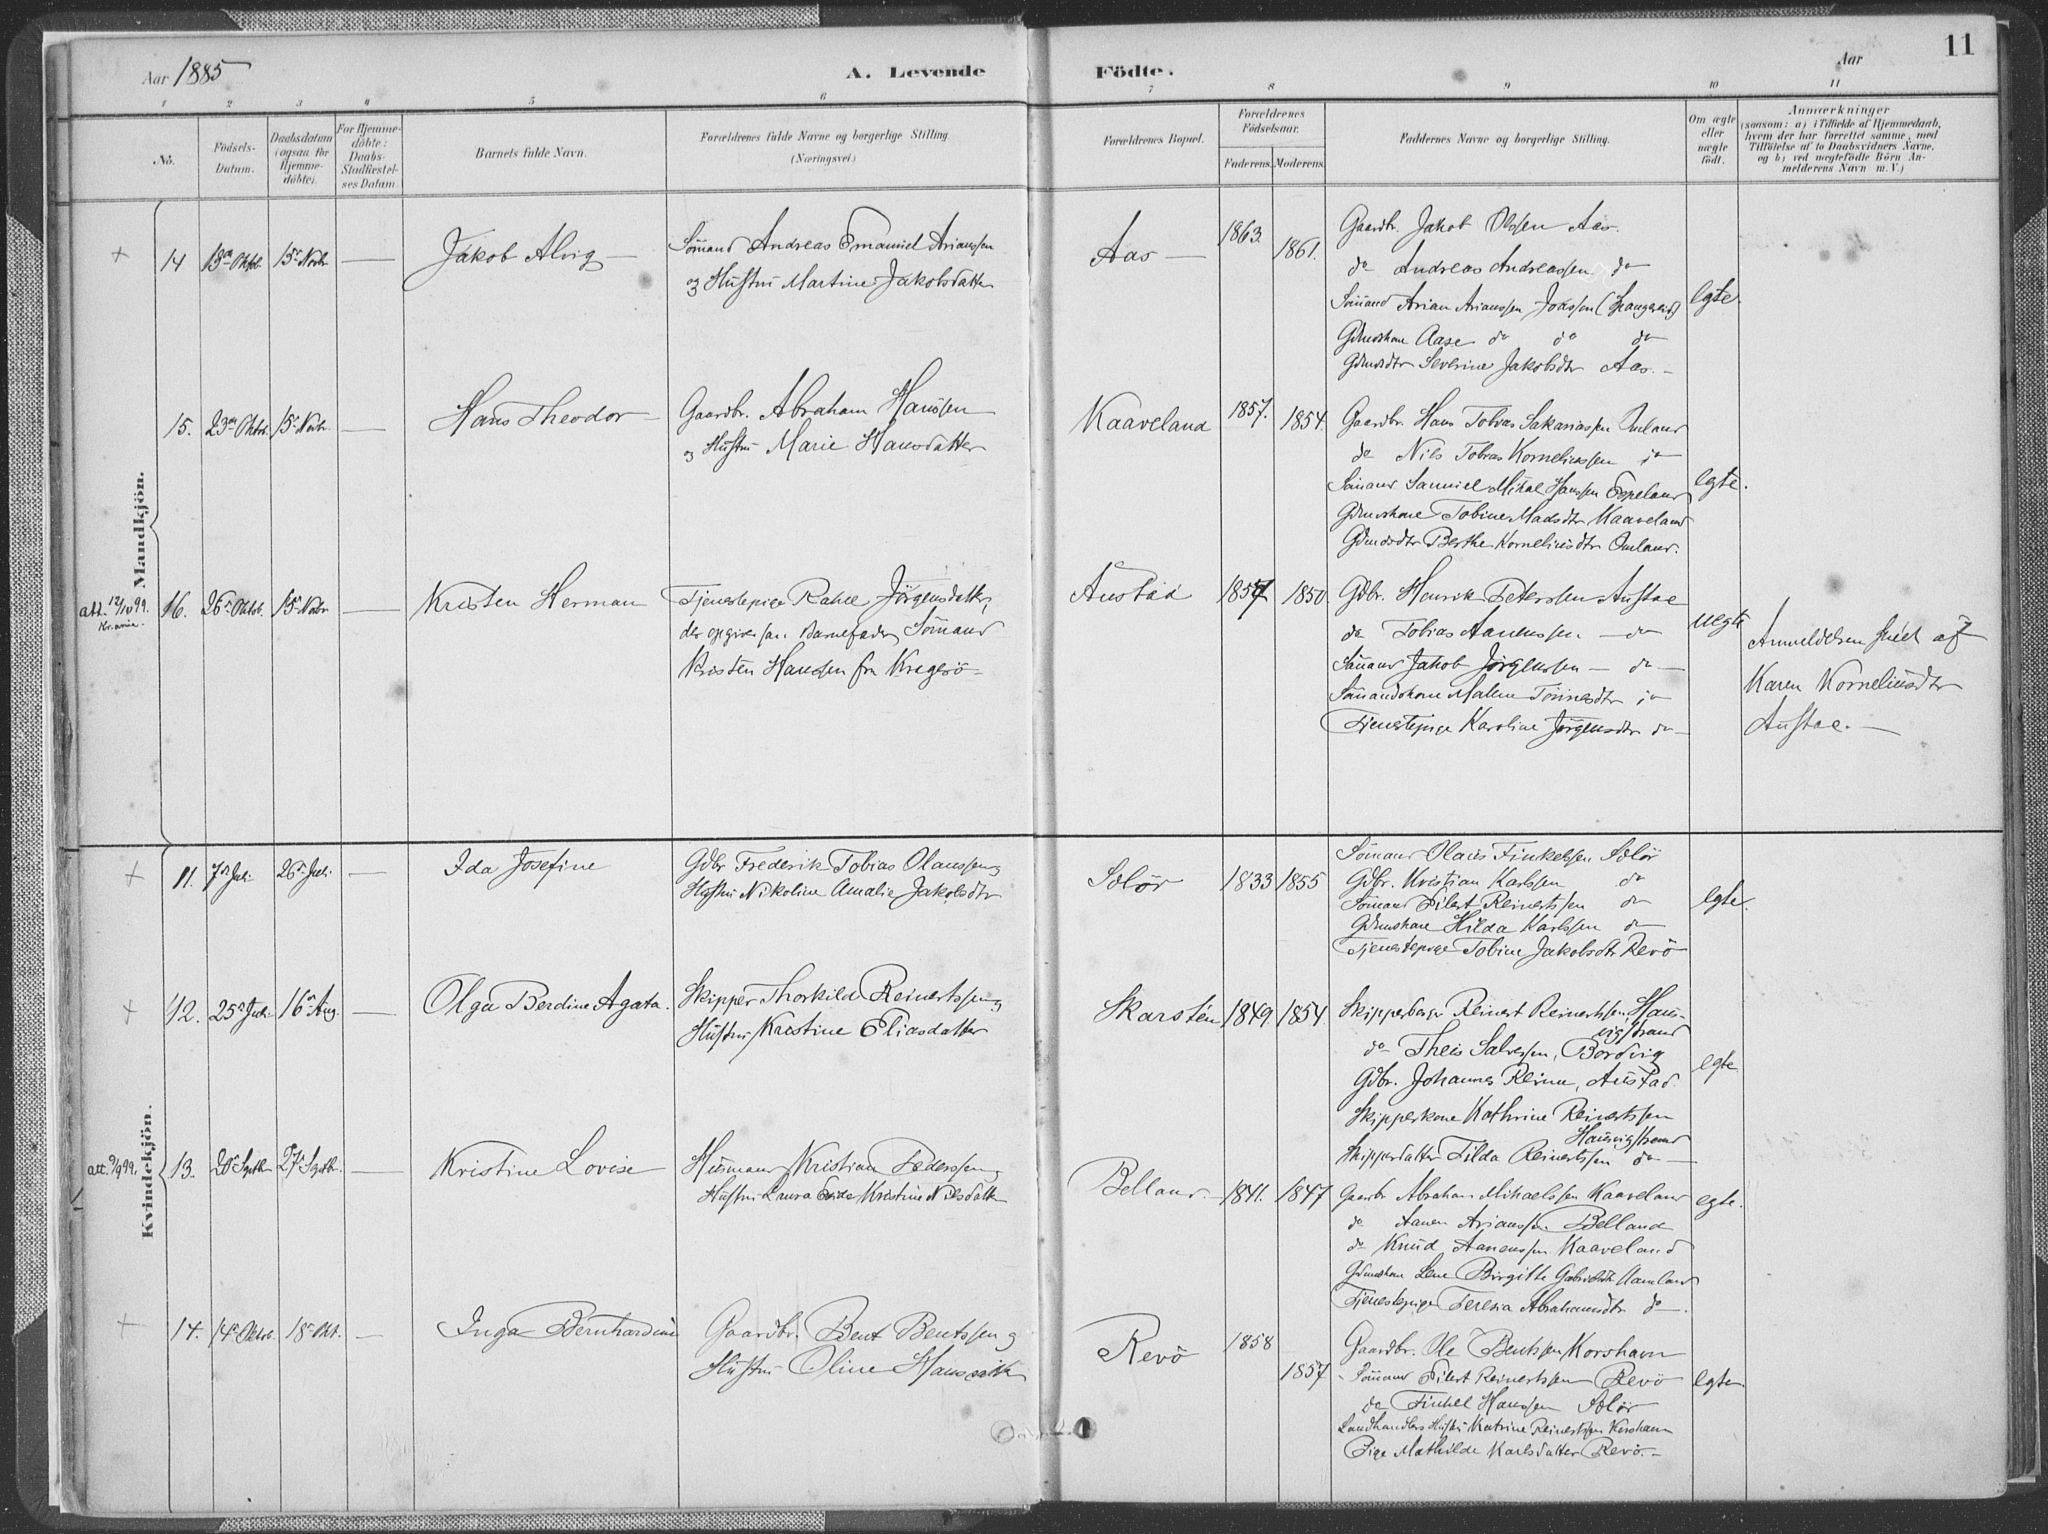 11
Aar 1885
A. Levende
Födte.
Aar
1 2 3 4 5 6 7 8 9 10 11
No.
Födsels-Datum.
Daabsdatum (ogsaa for Hjemme-döbte).
For Hjemme-döbte: Daabs-Stadfæstel-ses Datum
Barnets fulde Navn.
Forældrenes fulde Navne og borgerlige Stilling.
(Næringsvei.)
Forældrenes Bopæl.
Forældrenes Födselsaar.
Faderens. Moderens.
Faddernes Navne og borgerlige Stilling.
Om ægte eller uægte födt.
Anmærkninger
(saasom: a) i Tilfælde af Hjemmedaab,
hvem der har forrettet samme, med
Tilföielse af to Daabsvidners Navne,
og b) ved uægtefödte Börn An-
melderens Navn m. V.)
Mandkjön.
14 13de Oktob. 15de Novbr — Jakob Alvig —
Sömand Andreas Emanuel Arianssen
og Hustru Martine Jakobsdatter
Aas — 1863. 1861.
Gaardbr. Jakob Olssen Aas.
do Andreas Andreassen do
Sömand Arian Arianssen, (Spangereid)
Gdmdskone Aase do do do
Gdmdsdtr Severine Jakobsdtr Aas. —
egte.
15. 23de Oktob. 15de Novbr — Hans Theodor
Gaardbr. Abraham Hanssen
og Hustru Marie Hansdatter
Kaaveland 1857. 1854.
Gaardbr. Hans Tobias Sakariassen Omland
do Nils Tobias Korneliussen do
Sömand Samuel Mikal Hanssen Espeland
Gdmdskone Tobine Madsdtr Kaaveland
Gdmdsdtr Berthe Korneliusdtr Omland.
egte.
att. 12/10 99. Kr.ania.
16. 26de Oktob. 15de Novbr — Kristen Herman
Tjenestepige Rakel Jörgensdatter,
der opgiver som Barnefader Sömand
Kristen Hanssen fra Kragerö —
Austad 1857 1850
Gdbr. Henrik Peterssen Austad
do Tobias Aanenssen — do
Sömand Jakob Jörgenssen — do —
Sömandskone Malene Tönnesdtr do
Tjenestepige Karoline Jörgensdtr do —
uegte
Anmeldelsen skeet af
Karen Korneliusdtr
Austad. —
Kvindekjön.
11. 7de Juli 26de Juli. — Ida Josefine
Gdbr Frederik Tobias Olaussen og
Hustru Nikoline Amalie Jakobsdtr
Selör 1833 1855
Sömand Olaus Finkelsen Selör
Gdbr. Kristian Karlsen do
Sömand Eilert Reinertssen do
Gdmdskone Hilda Karlssen do
Tjenestepige Tobine Jakobsdtr Revö
egte.
12. 25de Juli 16de Aug. — Olga Berdine Agata.
Skipper Thorkild Reinertssen og
Hustru Kristine Eliasdatter
Skarstén 1849. 1854
Skipperborger Reinert Reinertssen, Haus-
vigstrand
do Theis Salvessen, Bordvig
Gdbr. Johannes Reime, Austad.
Skipperkone Kathrine Reinertssen
Hausvigstrand
Skipperdatter Tilda Reinertssen do —
egte
att. 9/9 99,
13. 20de Septbr. 27de Septbr. — Kristine Lovise
Husmand Kristian Pederssen og
Hustru Laura Kristine Nilsdatter
Belland. 1841. 1847
Gaardbr Abraham Mikaelssen Kaaveland
do Aanen Arianssen Belland
do Knud Aanenssen Kaaveland
Gdmdskone Lene Birgitte Gabrielsdtr Aamland
Tjenestepige Teresia Abrahamsdtr do —.
egte.
14. 14de Oktob. 18de Okt. — Inga Bernhardine
Gaardbr. Bent Bentssen og
Hustru Oline Hansdatter
Revö 1858 1857
Gaardbr. Ole Bentssen Korshavn
Sömand Eilert Reinertssen Revö
do Finkel Hanssen Selör
Landhandlers Hustru Katrine Reinertssen Korshavn
Pige Mathilde Karlsdatter Revö. —
egte.